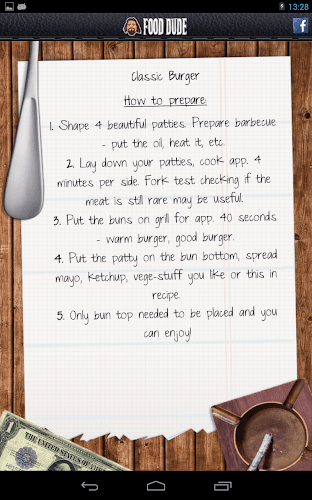 13:28
FOOD DUDE
f
Classic Burger
How to prepare:
1. Shape 4 beautiful patties. Prepare barbecue
- put the oil, heat it, etc.
2. Lay down your patties, cook app. 4
minutes per side. Fork test checking if the
meat is still rare may be useful.
3. Put the buns on grill for app. 40 seconds
- warm burger, good burger.
4. Put the patty on the bun bottom, spread
mayo, ketchup, vege-stuff you like or this in
recipe.
5. Only bun top needed to be placed and you
can enjoy!
THE UNITED STATES OF AMERICA
1